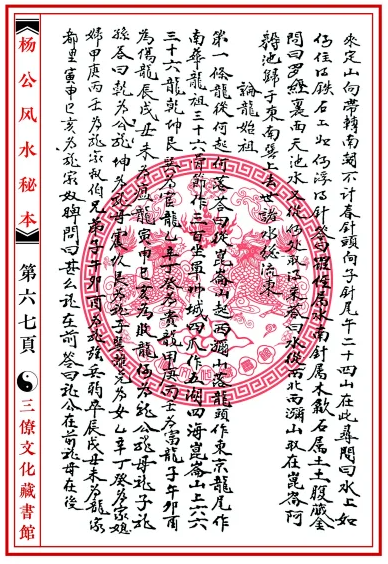 來定山向帶轉南朝不計春針頭向子針尾午二十四山在此尋問曰水上如
何住得鐵石工如何浮得針答曰羅經屬水南針屬木鐵石屬土土殺藏金
問曰羅經裏面天池水又從何處取得來答曰水從西北西彌山取在崑崙阿
耨池歸于東南巽上去世謠水總流東
論龍始祖
第一條龍後何起何落答曰從崑崙山起西彌山落龍頭作東京龍尾作
南華龍祖三十六骨節作三百坐軍州城四爪作五湖四海崑崙山上六六
三十六龍乾坤艮巽為官龍乙辛丁癸為貴龍甲庚丙壬為富龍子午卯酉
為傷龍辰戌丑未為盜龍寅申巳亥為敗龍何為龍公龍母龍子龍
孫答曰乾為公龍坤為龍母震坎艮為龍子巽離兌為女乙辛丁癸為家媳
婦甲庚丙壬為龍家叔伯兄弟子午卯酉為龍孫兵弱卒辰戌丑未為龍家
都里寅申巳亥為龍家奴婢問曰甚么龍在前答曰龍公在前龍母在後
杨公风水秘本
第六七頁
三僚文化藏書館